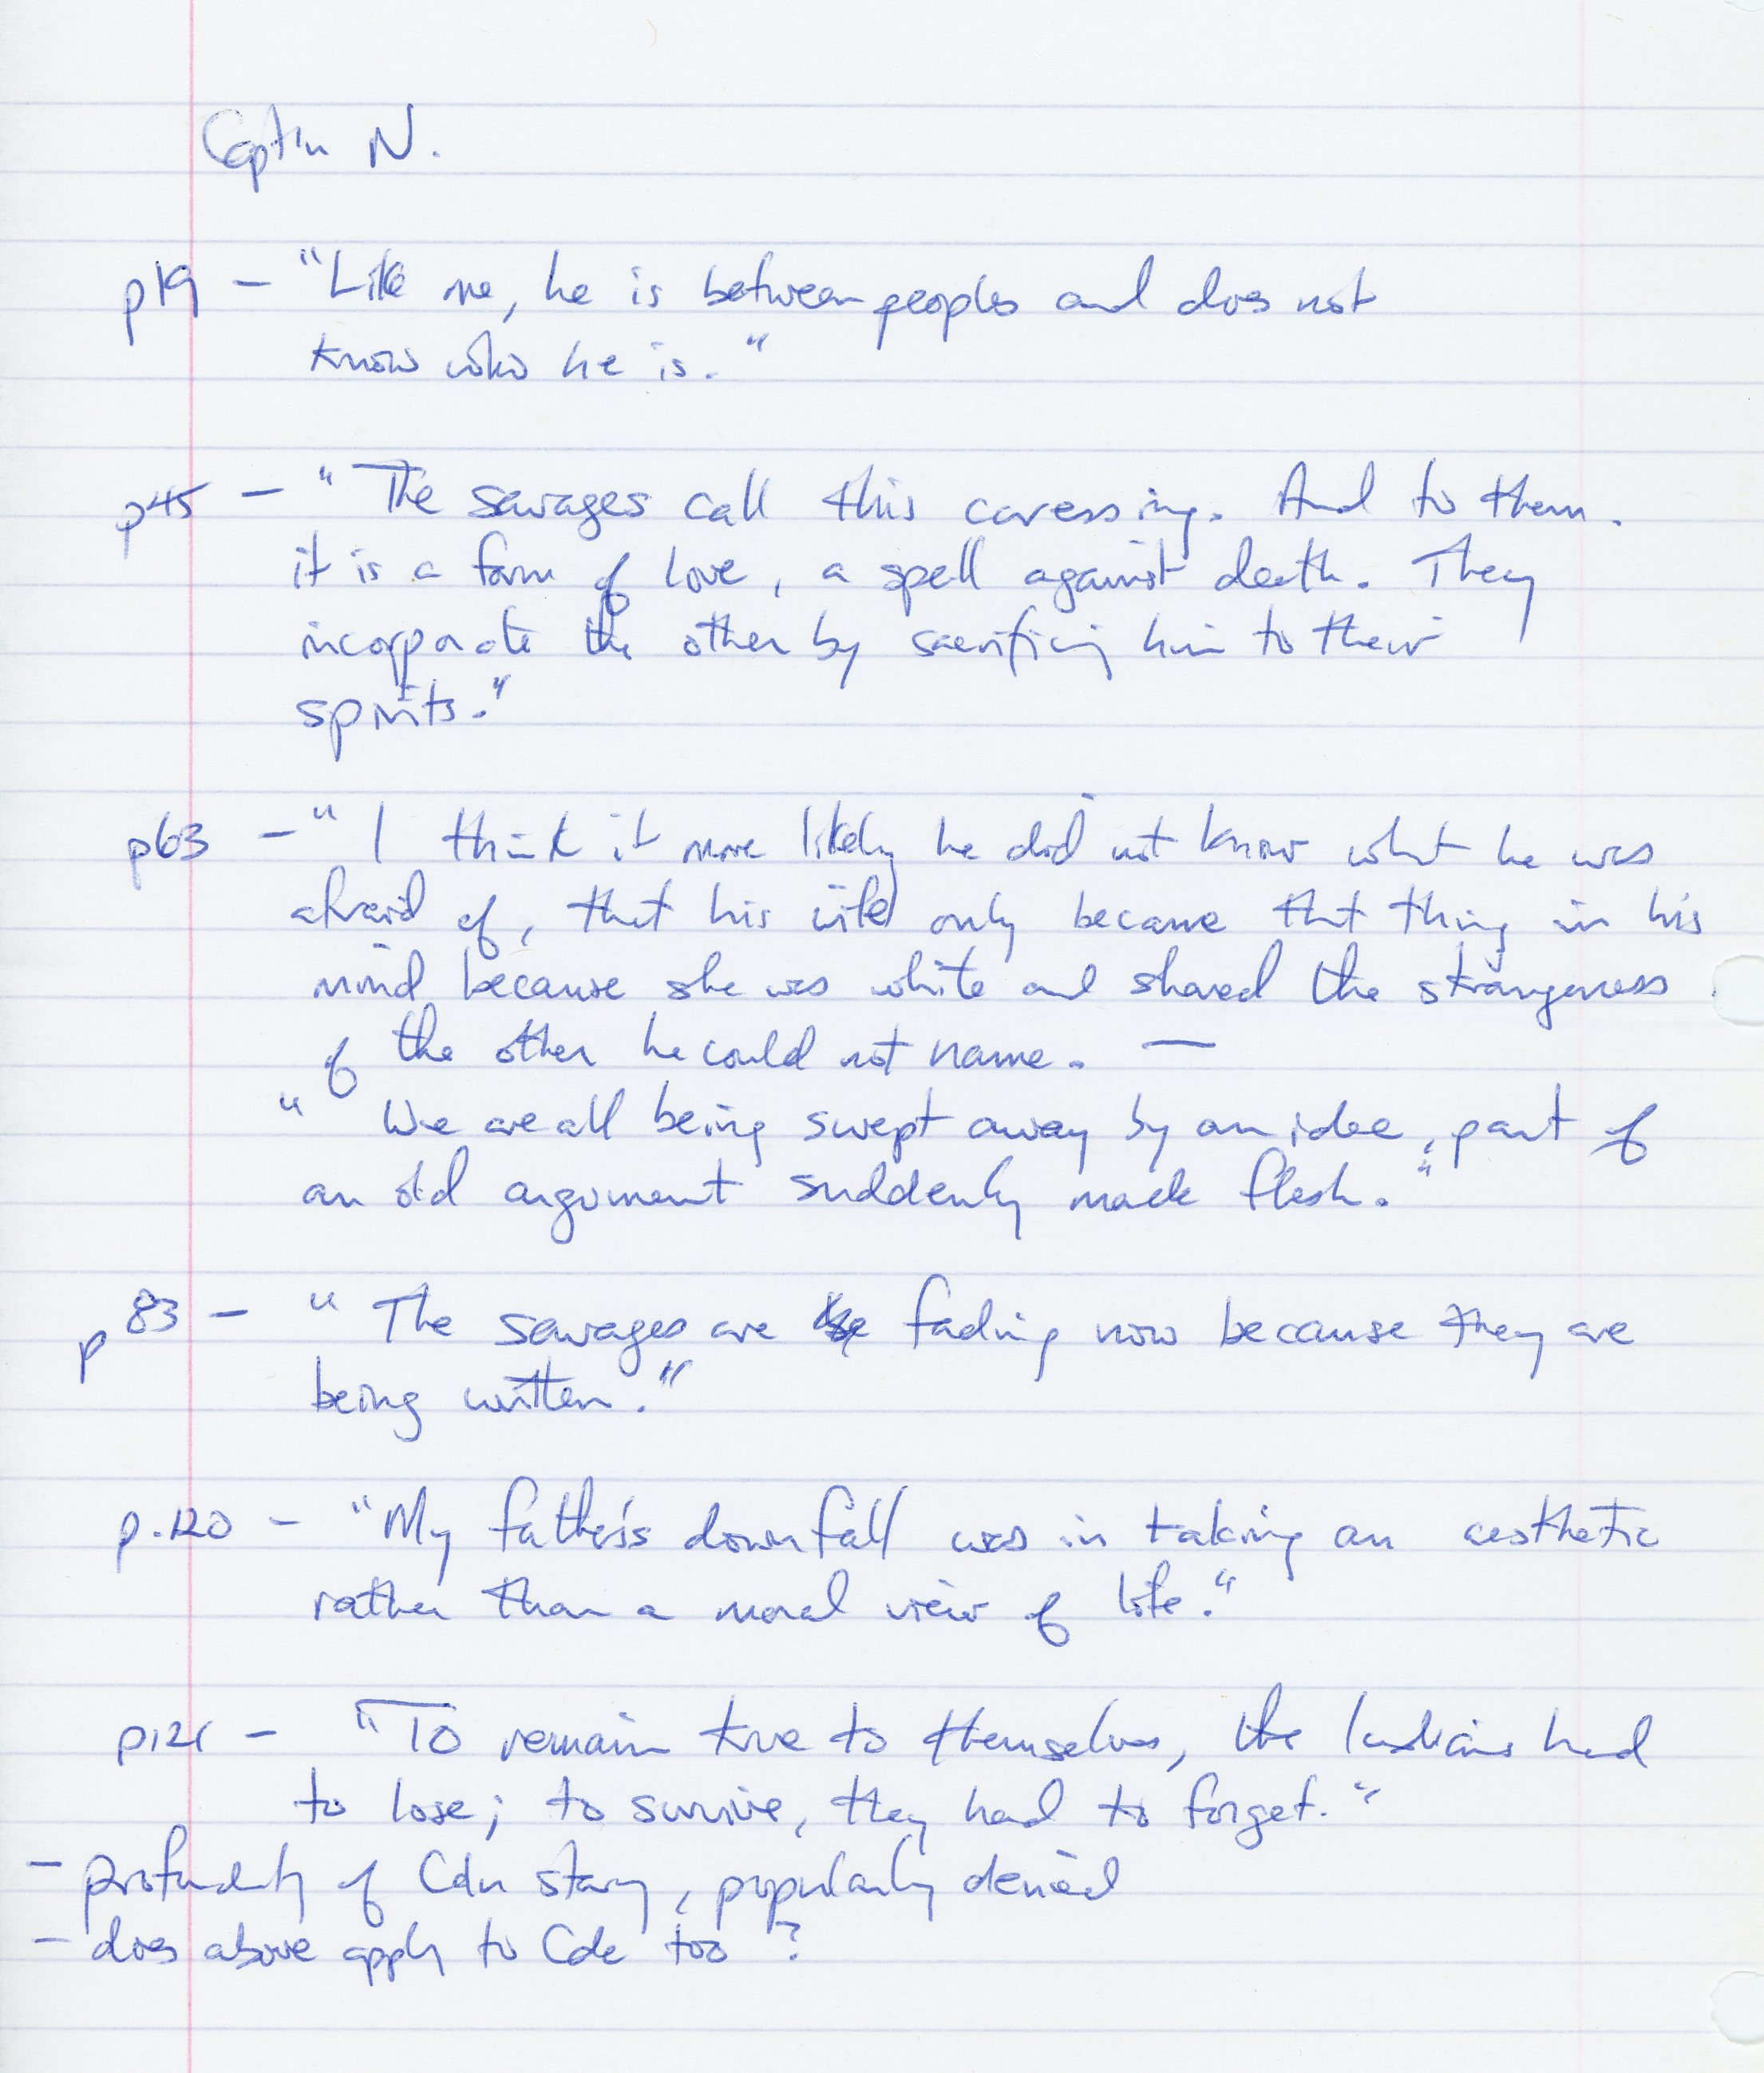 Captn N.
p19 — "Like me, he is between peoples and does not
know who he is."
p45 — "The savages call this caressing. And to them.
it is a form of love, a spell against death. They
incorporate the other by sacrificing him to their
spirits."
p63 — "I think it more likely he did not know what he was
afraid of, that his wife only became that thing in his
mind because she was white and shared the strangeness
of the other he could not name. —
" We are all being swept away by an idea, part of
an old argument suddenly made flesh."
p83 — "The savages are fading now because they are
being written."
p.120 — "My father's downfall was in taking an aesthetic
rather than a moral view of life."
p121 — "To remain true to themselves, the Indians had
to lose; to survive, they had to forget."
— profundity of Cdn story, popularly denied
— does above apply to Cda too?